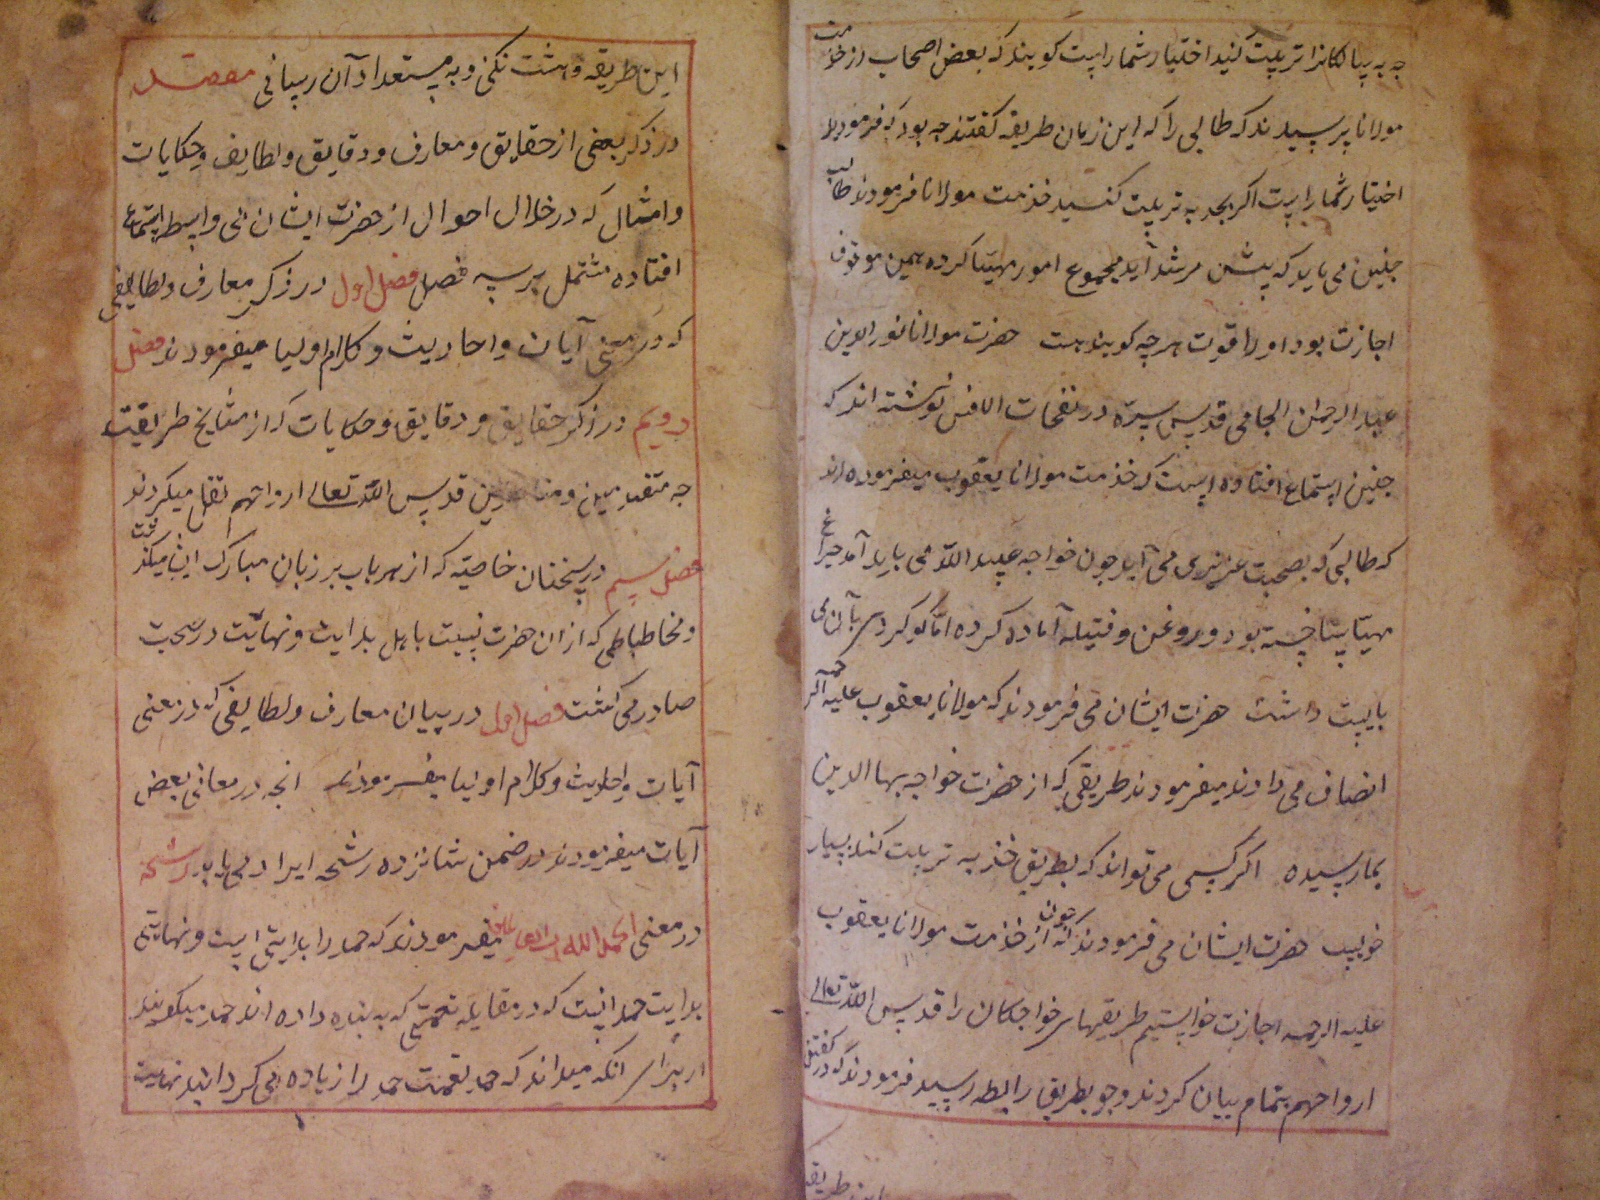 چه به سالکانرا تربیت کنید اختیار شماراست کویند که بعض اصحاب از خدمت
مولانا پرسیدند که طالبی را که این زمان طریقه کفتند چه بود که فرمودند
اختیار شماراست اکر بجذبه تربیت کنید خدمت مولانا فرمودند طالب
چنین می باید که پیش مرشد آید مجموع امور مهیا کرده همین موقوف
اجازت بود او را قوت هر چه کویند هست حضرت مولانا نور الدین
عبد الرحمن الجامی قدس سره در نفحات الانس نوشته اند که
چنین استماع افتاده است که خدمت مولانا یعقوب میفرموده اند
که طالبی که بصحبت عزیزی می آید چون خواجه عبید الله می باید آمد چراغ
مهیا ساخته بود و روغن و فتیله آماده کرده اما کوکردی بآن می
بایست داشت حضرت ایشان می فرمودند که مولانا یعقوب علیه الرحمه
انصاف می دادند میفرمودند طریقی که از حضرت خواجه بهاالدین
بما رسیده اکر کسی می تواند که بطریق جذبه تربیت کند بسیار
خوبست حضرت ایشان می فرمودند که چون از خدمت مولانا یعقوب
علیه الرحمه اجازت خواستیم طریقهای خواجکان را قدس الله تعالی
ارواحهم بتمام بیان کردند و چو بطریق رابطه رسید فرمودند که در کفتن
این طریقه
این طریقه دهشت نکنی و به مستعدان آن رسانی مقصد
در ذکر بعضی از حقایق و معارف و دقایق و لطایف و حکایات
و امثال که در خلال احوال از حضرت ایشان بی واسطه استماع
افتاده مشتمل بر سه فصل فصل اول در ذکر معارف و لطایفی
که در معنی آیات و احادیث و کلام اولیا میفرمودند فصل
دویم در ذکر حقایق و دقایق و حکایات که از مشایخ طریقت
چه متقدمین و متاخرین قدس الله تعالی ارواحهم نقل میکردند
فصل سیم در سخنان خاصه که از هر باب بر زبان مبارک ایشان میکذشت
و مخاطباطی که از ان حضرت نسبت باهل بدایت و نهایت در صحبت
صادر می کشت فصل اول در بیان معارف و لطایفی که در معنی
آیات و احادیث و کلام اولیا میفرمودند انچه در معانی بعض
آیات میفرمودند در ضمن شانزده رشحه ایراد می یابد رشحه
در معنی الحمد الله رب العالمین میفرمودند که حمد را بدایتی است و نهایتی
بدایت حمد انست که در مقابله نعمتی که به بنده داده اند حمد میکویند
از برای آنکه میداند که حمد نعمت حمد را زیاده می کرداند نهایت